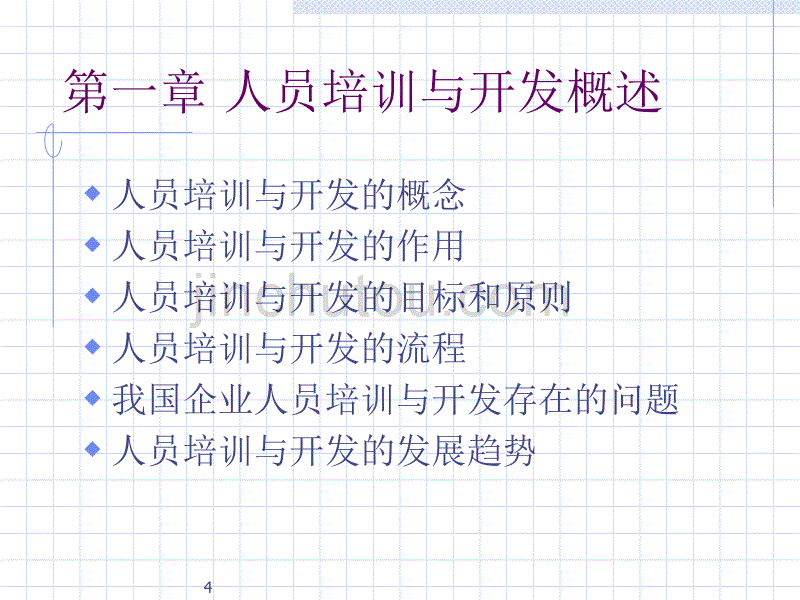 第一章 人员培训与开发概述
人员培训与开发的概念
人员培训与开发的作用
人员培训与开发的目标和原则
人员培训与开发的流程
我国企业人员培训与开发存在的问题
人员培训与开发的发展趋势
jinchutou.com
4